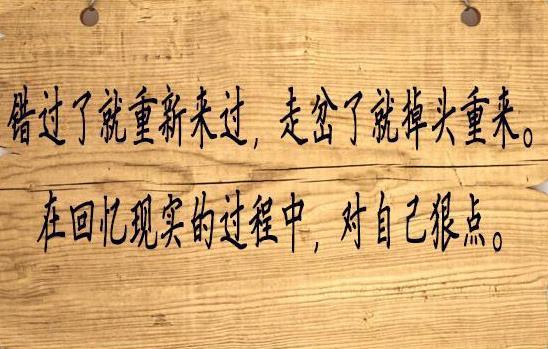 错过了就重新来过，走岔了就掉头重来。
在回忆现实的过程中，对自己狠点。